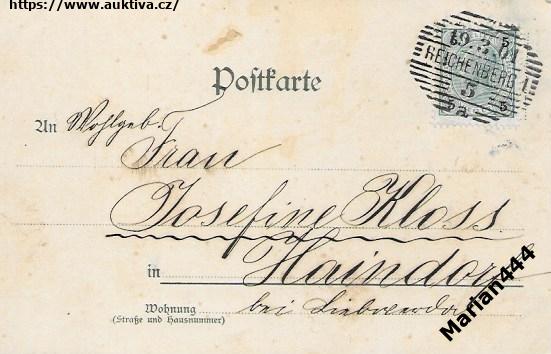 https://www.auktiva.cz/
19. 3. 01
REICHENBERG 1.
5
5
5
Postkarte
An Wohlgeb.
Frau
Josefine Kloss.
in Haindorf
Wohnung bei Liebwerda
(Straße und Hausnummer)
Marian444